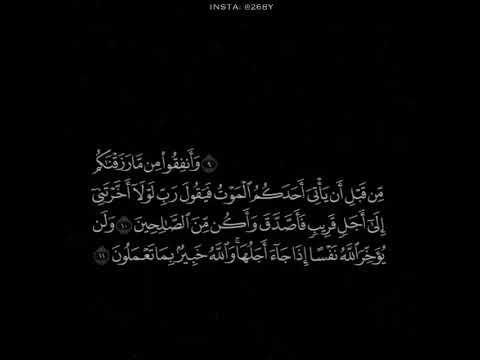 INSTA: @268Y
٩ وَأَنفِقُوا۟ مِن مَّا رَزَقْنَٰكُم
مِّن قَبْلِ أَن يَأْتِىَ أَحَدَكُمُ ٱلْمَوْتُ فَيَقُولَ رَبِّ لَوْلَآ أَخَّرْتَنِىٓ
إِلَىٰٓ أَجَلٍ قَرِيبٍ فَأَصَّدَّقَ وَأَكُن مِّنَ ٱلصَّٰلِحِينَ ١٠ وَلَن
يُؤَخِّرَ ٱللَّهُ نَفْسًا إِذَا جَآءَ أَجَلُهَا ۚ وَٱللَّهُ خَبِيرٌۢ بِمَا تَعْمَلُونَ ١١